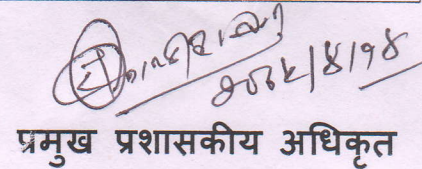 २०६५/४/१४
प्रमुख प्रशासकीय अधिकृत